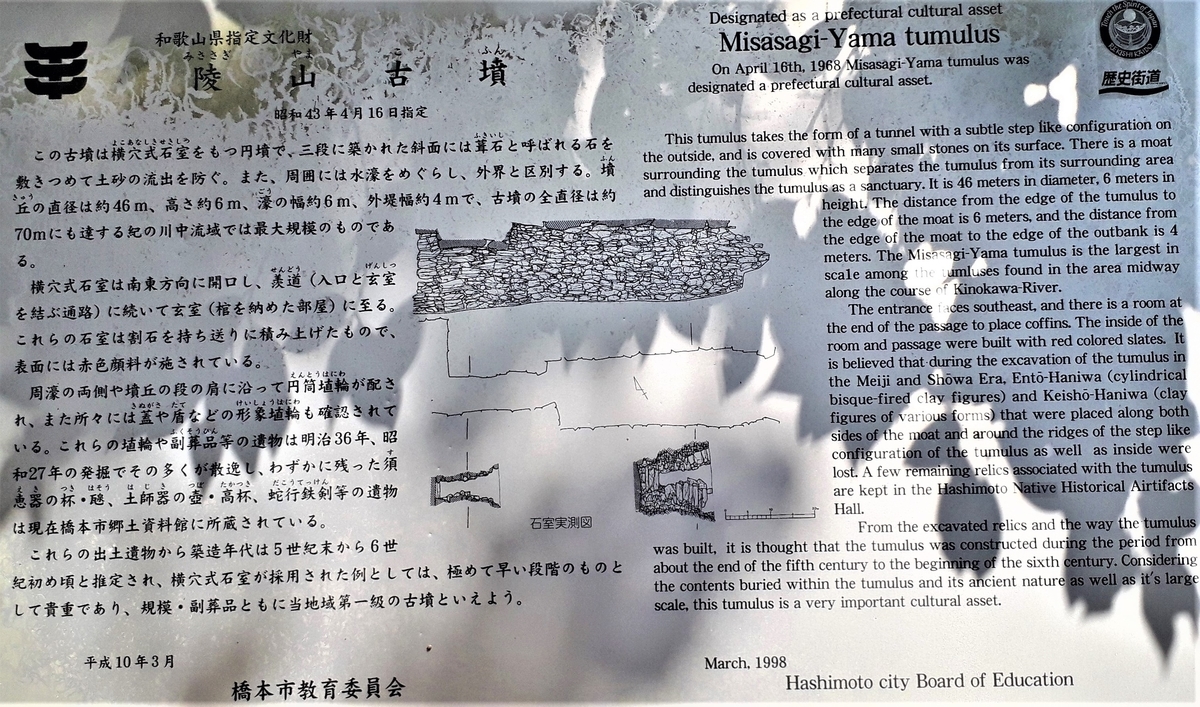 和歌山県指定文化財
みささぎ やま こ ふん
陵山古墳
昭和43年4月16日指定
よこあなしきせきしつ ふきいし
この古墳は横穴式石室をもつ円墳で、三段に築かれた斜面には葺石と呼ばれる石を
ふん
敷きつめて土砂の流出を防ぐ。また、周囲には水濠をめぐらし、外界と区別する。墳
きゅう ごう
丘の直径は約46m、高さ約6m、濠の幅約6m、外堤幅約4mで、古墳の全直径は約
70mにも達する紀の川中流域では最大規模のものであ
る。
せんどう げんしつ
横穴式石室は南東方向に開口し、羨道（入口と玄室
を結ぶ通路）に続いて玄室（棺を納めた部屋）に至る。
これらの石室は割石を持ち送りに積み上げたもので、
表面には赤色顔料が施されている。
えんとうはにわ
周濠の両側や墳丘の段の肩に沿って円筒埴輪が配さ
きぬがさ たて けいしょうはにわ
れ、また所々には蓋や盾などの形象埴輪も確認されて
ふくそうひん
いる。これらの埴輪や副葬品等の遺物は明治36年、昭
す
和27年の発掘でその多くが散逸し、わずかに残った須
えき つき はそう はじき つぼ たかつき だこうてっけん
恵器の杯・𤭯、土師器の壺・高杯、蛇行鉄剣等の遺物
は現在橋本市郷土資料館に所蔵されている。
これらの出土遺物から築造年代は5世紀末から6世
紀初め頃と推定され、横穴式石室が採用された例としては、極めて早い段階のものと
して貴重であり、規模・副葬品ともに当地域第一級の古墳といえよう。
平成10年3月
橋本市教育委員会
石室実測図
Designated as a prefectural cultural asset
Misasagi-Yama tumulus
On April 16th, 1968 Misasagi-Yama tumulus was
designated a prefectural cultural asset.
歴史街道
This tumulus takes the form of a tunnel with a subtle step like configuration on
the outside, and is covered with many small stones on its surface. There is a moat
surrounding the tumulus which separates the tumulus from its surrounding area
and distinguishes the tumulus as a sanctuary. It is 46 meters in diameter, 6 meters in
height. The distance from the edge of the tumulus to
the edge of the moat is 6 meters, and the distance from
the edge of the moat to the edge of the outbank is 4
meters. The Misasagi-Yama tumulus is the largest in
scale among the tumluses found in the area midway
along the course of Kinokawa-River.
The entrance faces southeast, and there is a room at
the end of the passage to place coffins. The inside of the
room and passage were built with red colored slates. It
is believed that during the excavation of the tumulus in
the Meiji and Shōwa Era, Entō-Haniwa (cylindrical
bisque-fired clay figures) and Keishō-Haniwa (clay
figures of various forms) that were placed along both
sides of the moat and around the ridges of the step like
configuration of the tumulus as well as inside were
lost. A few remaining relics associated with the tumulus
are kept in the Hashimoto Native Historical Airtifacts
Hall.
From the excavated relics and the way the tumulus
was built, it is thought that the tumulus was constructed during the period from
about the end of the fifth century to the beginning of the sixth century. Considering
the contents buried within the tumulus and its ancient nature as well as it's large
scale, this tumulus is a very important cultural asset.
March, 1998
Hashimoto city Board of Education